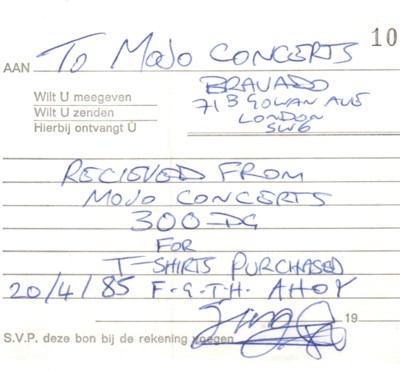 10
AAN TO MOJO CONCERTS
Wilt U meegeven
Wilt U zenden
Hierbij ontvangt U
BRAVADO
71B GOWAN AVE
LONDON
SW6
RECIEVED FROM
MOJO CONCERTS
300 DG
FOR
T-SHIRTS PURCHASED
20/4/85 F.G.T.H. AHOY
19
S.V.P. deze bon bij de rekening voegen